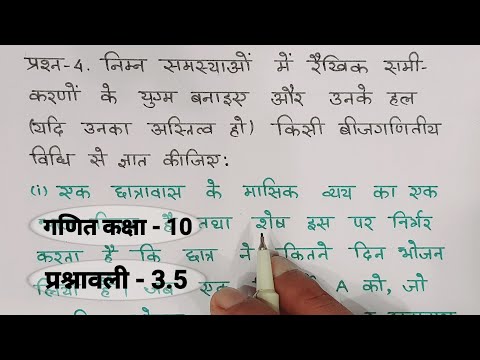 प्रश्न-4. निम्न समस्याओं में रैखिक समी-
करणों के युग्म बनाइए और उनके हल
(यदि उनका अस्तित्व हो) किसी बीजगणितीय
विधि से ज्ञात कीजिए:
(i) एक छात्रावास के मासिक व्यय का एक
है तथा शेष इस पर निर्भर
गणित कक्षा - 10
करता है कि छात्र ने कितने दिन भोजन
प्रश्नावली - 3.5
A को, जो